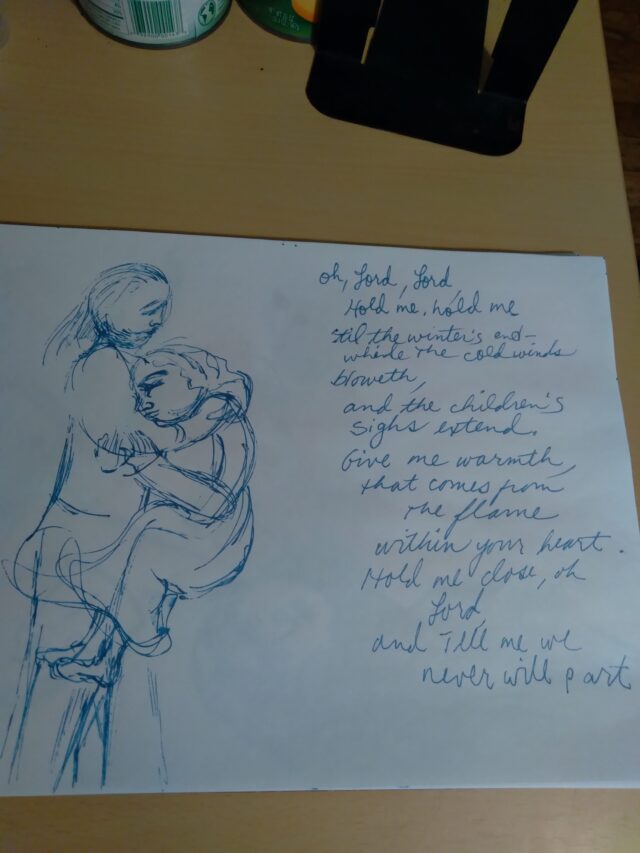 oh, Lord, Lord
Hold me, hold me
'til the winter's end-
while the cold winds
bloweth,
and the children's
sighs extend.
Give me warmth,
that comes from
the flame
within your heart.
Hold me close, oh
Lord,
and Tell me we
never will part